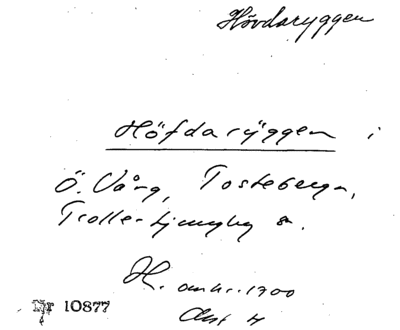 Hövdaryggen
Höfdaryggen i
Ö. Vång, Tosteberga,
Trolle-Ljungby sn.
H. omkr. 1900
Nr 10877